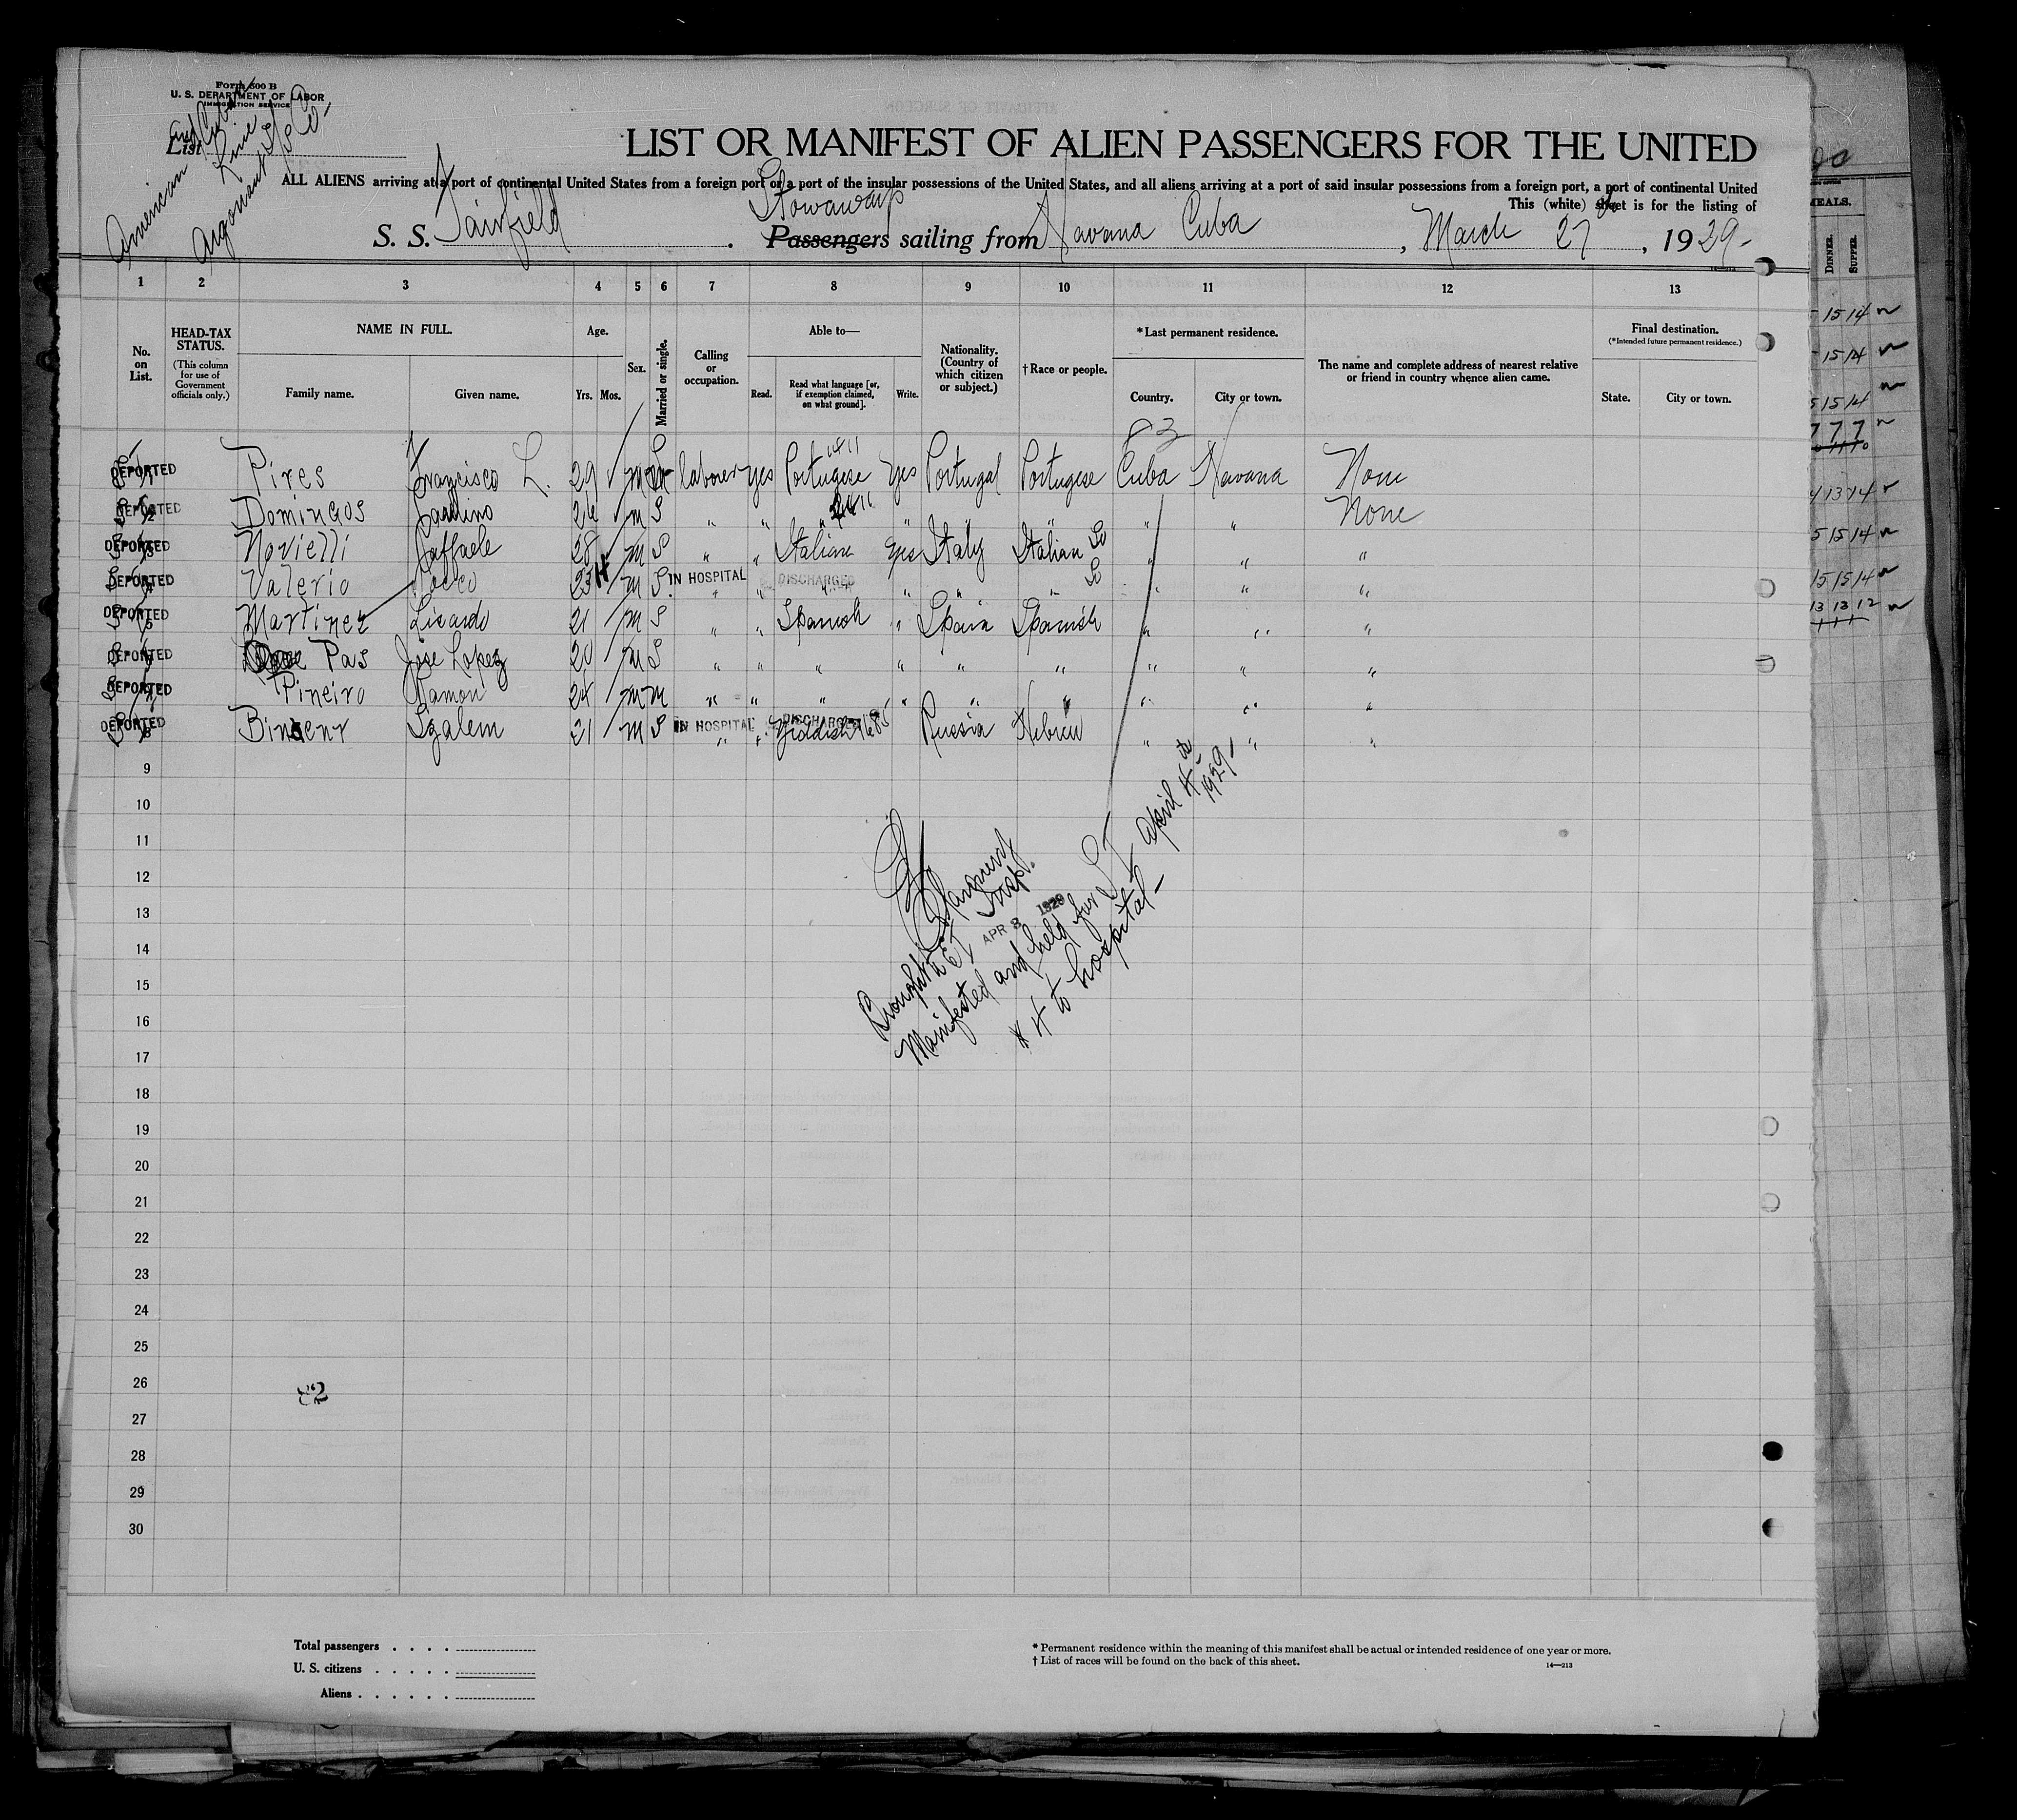 Form 500 B
U. S. DEPARTMENT OF LABOR
IMMIGRATION SERVICE
List
American Cuban Line
Argonaut S/S Co.
LIST OR MANIFEST OF ALIEN PASSENGERS FOR THE UNITED
ALL ALIENS arriving at a port of continental United States from a foreign port or a port of the insular possessions of the United States, and all aliens arriving at a port of said insular possessions from a foreign port, a port of continental United
This (white) sheet is for the listing of
Stowaways
S. S. Fairfield . Passengers sailing from Havana Cuba , March 27 , 1929-
1 2 3 4 5 6 7 8 9 10 11 12 13
No. on List.
HEAD-TAX STATUS.
(This column for use of Government officials only.)
NAME IN FULL.
Family name. Given name.
Age.
Yrs. Mos.
Sex.
Married or single.
Calling or occupation.
Able to—
Read. Read what language [or, if exemption claimed, on what ground]. Write.
Nationality. (Country of which citizen or subject.)
†Race or people.
*Last permanent residence.
Country. City or town.
The name and complete address of nearest relative or friend in country whence alien came.
Final destination.
(*Intended future permanent residence.)
State. City or town.
83
DEPORTED 1 Pires Francisco L. 29 m laborer yes Portugese yes Portugal Portugese Cuba Havana None
DEPORTED 2 Domingos 26 m S " " " " " " " " None
DEPORTED 3 Novielli Raffaele 28 m S " " Italian yes Italy Italian So " " "
DEPORTED 4 Valerio Rocco 23 m S IN HOSPITAL " " DISCHARGED " " " " So " " "
DEPORTED 5 Martinez Lisardo 21 m S " " Spanish " Spain Spanish " " "
DEPORTED 6 Pas Jose Lopez 20 m S " " " " " " " " "
DEPORTED 7 Pineiro Ramon 24 m m " " " " " " " " "
DEPORTED 8 Szalem 21 m S IN HOSPITAL " " DISCHARGED Yiddish Russia Hebrew " " "
9
10
11
12
13
14
15
16
17
18
19
20
21
22
23
24
25
26
27
28
29
30
Insp.
Brought to EI APR 3 1929
Manifested and held for SI April 4th 1929-
# 4 to hospital-
82
Total passengers . . . .
U. S. citizens . . . . .
Aliens . . . . . .
* Permanent residence within the meaning of this manifest shall be actual or intended residence of one year or more.
† List of races will be found on the back of this sheet.
14—213
MEALS.
DINNER. SUPPER.
15 14
15 14
15 14
7 7 7
13 14
15 14
15 15 14
13 13 12